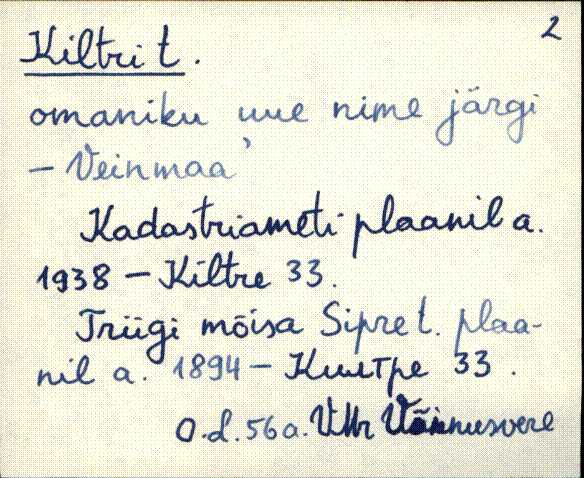 2
Kiltri t.
omaniku uue nime järgi
– Veinmaa'
Kadastriameti plaanil a.
1938 – Kiltre 33.
Triigi mõisa Sipre t. plaa-
nil a. 1894 – Килтре 33.
O.d. 56 a. VMr Võinnusvere